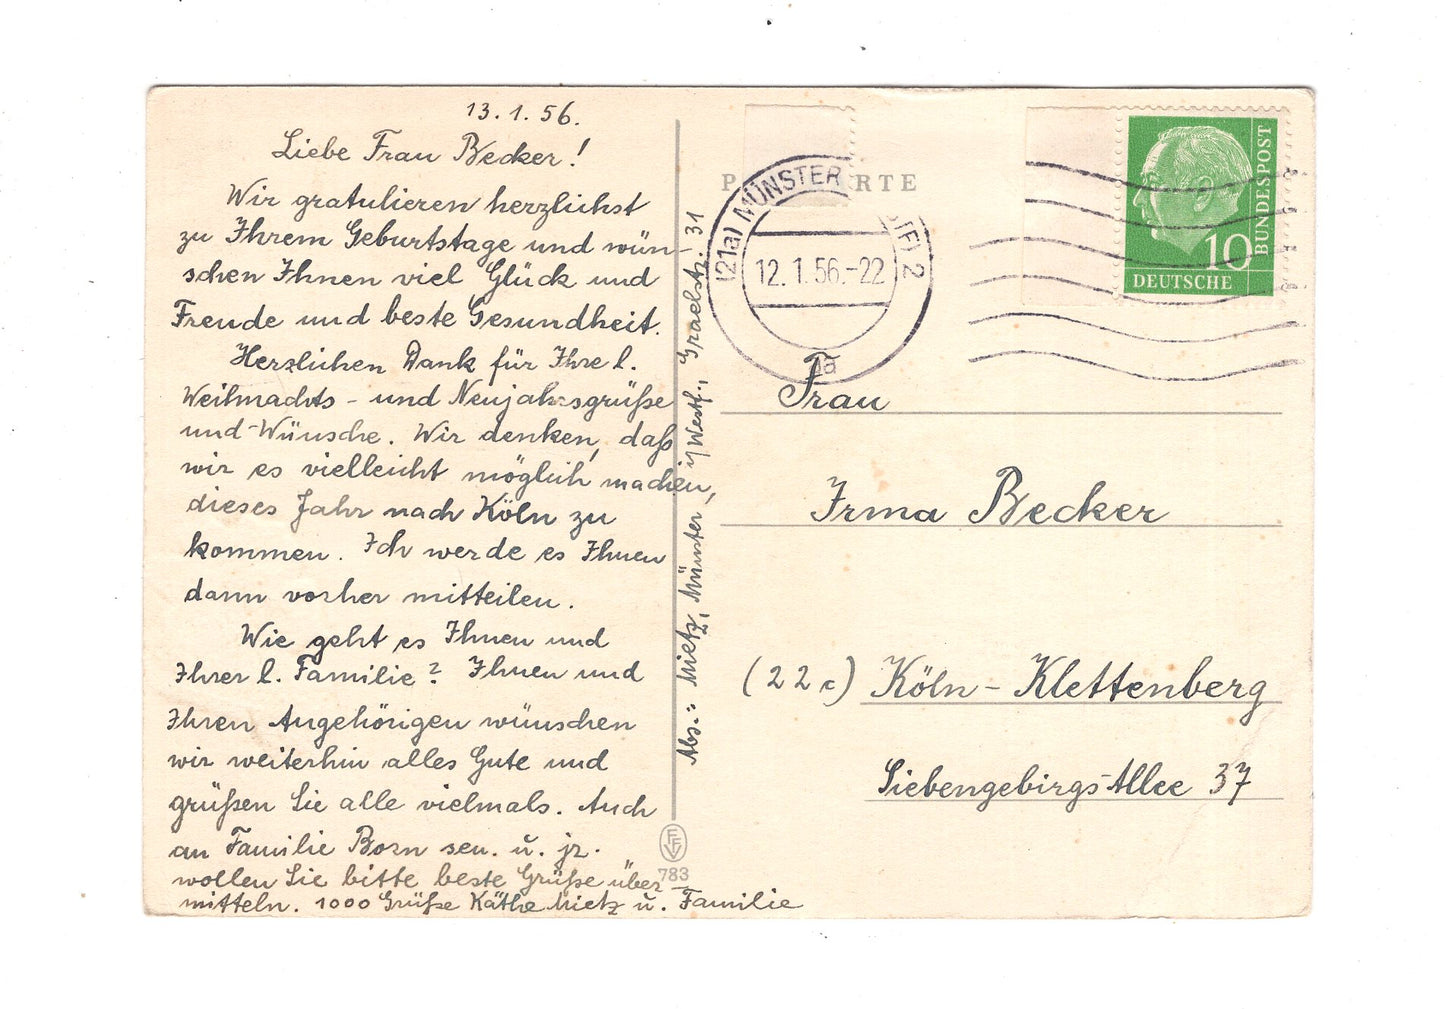 13.1.56.
Liebe Frau Becker!
Wir gratulieren herzlichst
zu Ihrem Geburtstage und wün-
schen Ihnen viel Glück und
Freude und beste Gesundheit.
Herzlichen Dank für Ihre l.
Weihnachts- und Neujahrsgrüße
und-Wünsche. Wir denken, daß
wir es vielleicht möglich machen,
dieses Jahr nach Köln zu
kommen. Ich werde es Ihnen
dann vorher mitteilen.
Wie geht es Ihnen und
Ihrer l. Familie? Ihnen und
Ihren Angehörigen wünschen
wir weiterhin alles Gute und
grüßen Sie alle vielmals. Auch
an Familie Born sen. u. jr.
wollen Sie bitte beste Grüße über-
mitteln. 1000 Grüße Käthe Mietz u. Familie
Abs.: Mietz, Münster i/Westf., Graelstr. 31
EFV
783
P RTE
(21a) MÜNSTER (WESTF) 2
12.1.56.-22
10
DEUTSCHE
BUNDESPOST
Frau
Irma Becker
(22c) Köln-Klettenberg
Siebengebirgs-Allee 37